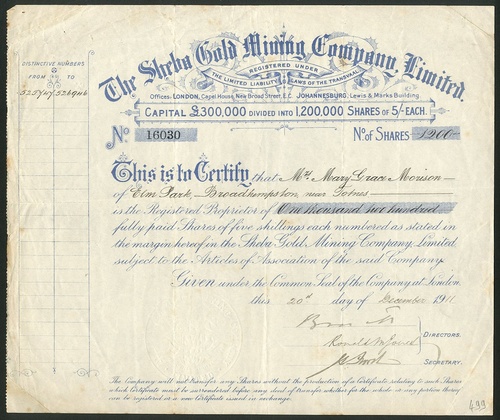 The Sheba Gold Mining Company, Limited
REGISTERED UNDER
THE LIMITED LIABILITY LAWS OF THE TRANSVAAL
Offices- LONDON, Capel House, New Broad Street, E.C. JOHANNESBURG, Lewis & Marks Building
CAPITAL £300,000 DIVIDED INTO 1,200,000 SHARES OF 5/- EACH.
DISTINCTIVE NUMBERS
FROM TO
525747 526946
No 16030 No of SHARES 1200
This is to Certify that Mrs Mary Grace Morison
of Elm Park Broadhempston near Totnes
is the Registered Proprietor of One thousand two hundred
fully paid Shares of five shillings each numbered as stated in
the margin hereof in the Sheba Gold Mining Company, Limited
subject to the Articles of Association of the said Company.
Given under the Common Seal of the Company at London
this 20th day of December 1911
DIRECTORS.
SECRETARY.
The Company will not transfer any Shares without the production of a Certificate relating to such Shares
which Certificate must be surrendered before any deed of transfer whether for the whole or any portion thereof
can be registered or a new Certificate issued in exchange.
499